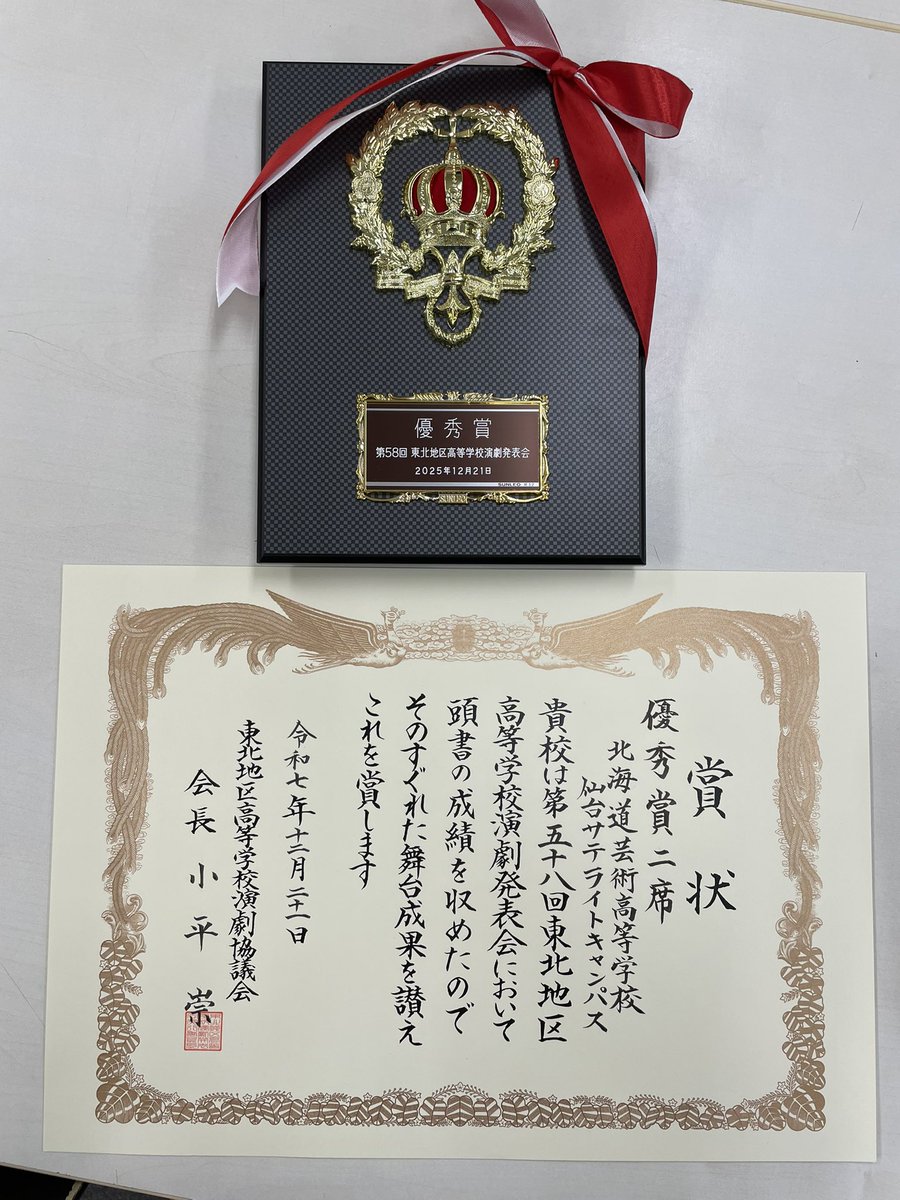 優秀賞
第58回 東北地区高等学校演劇発表会
2025年12月21日
SUNLEO
SUNLEO
賞状
優秀賞二席
北海道芸術高等学校
仙台サテライトキャンパス
貴校は第五十八回東北地区
高等学校演劇発表会において
頭書の成績を収めたので
そのすぐれた舞台成果を讃え
これを賞します
令和七年十二月二十一日
東北地区高等学校演劇協議会
会長 小平 崇